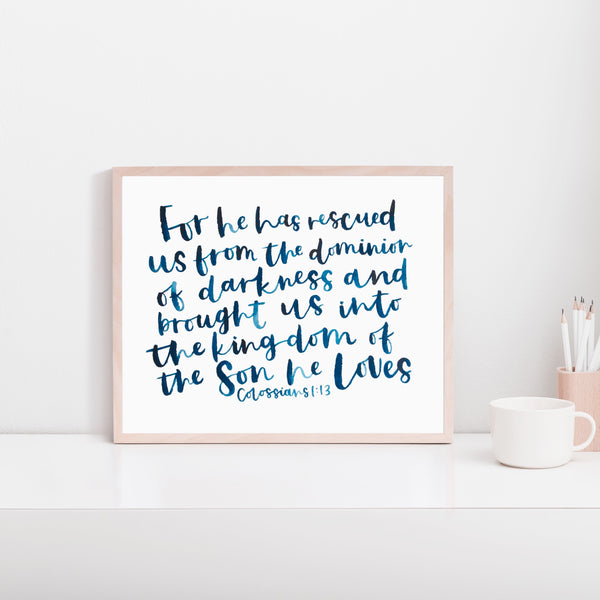 For he has rescued
us from the dominion
of darkness and
brought us into
the kingdom of
the Son he Loves
Colossians 1:13